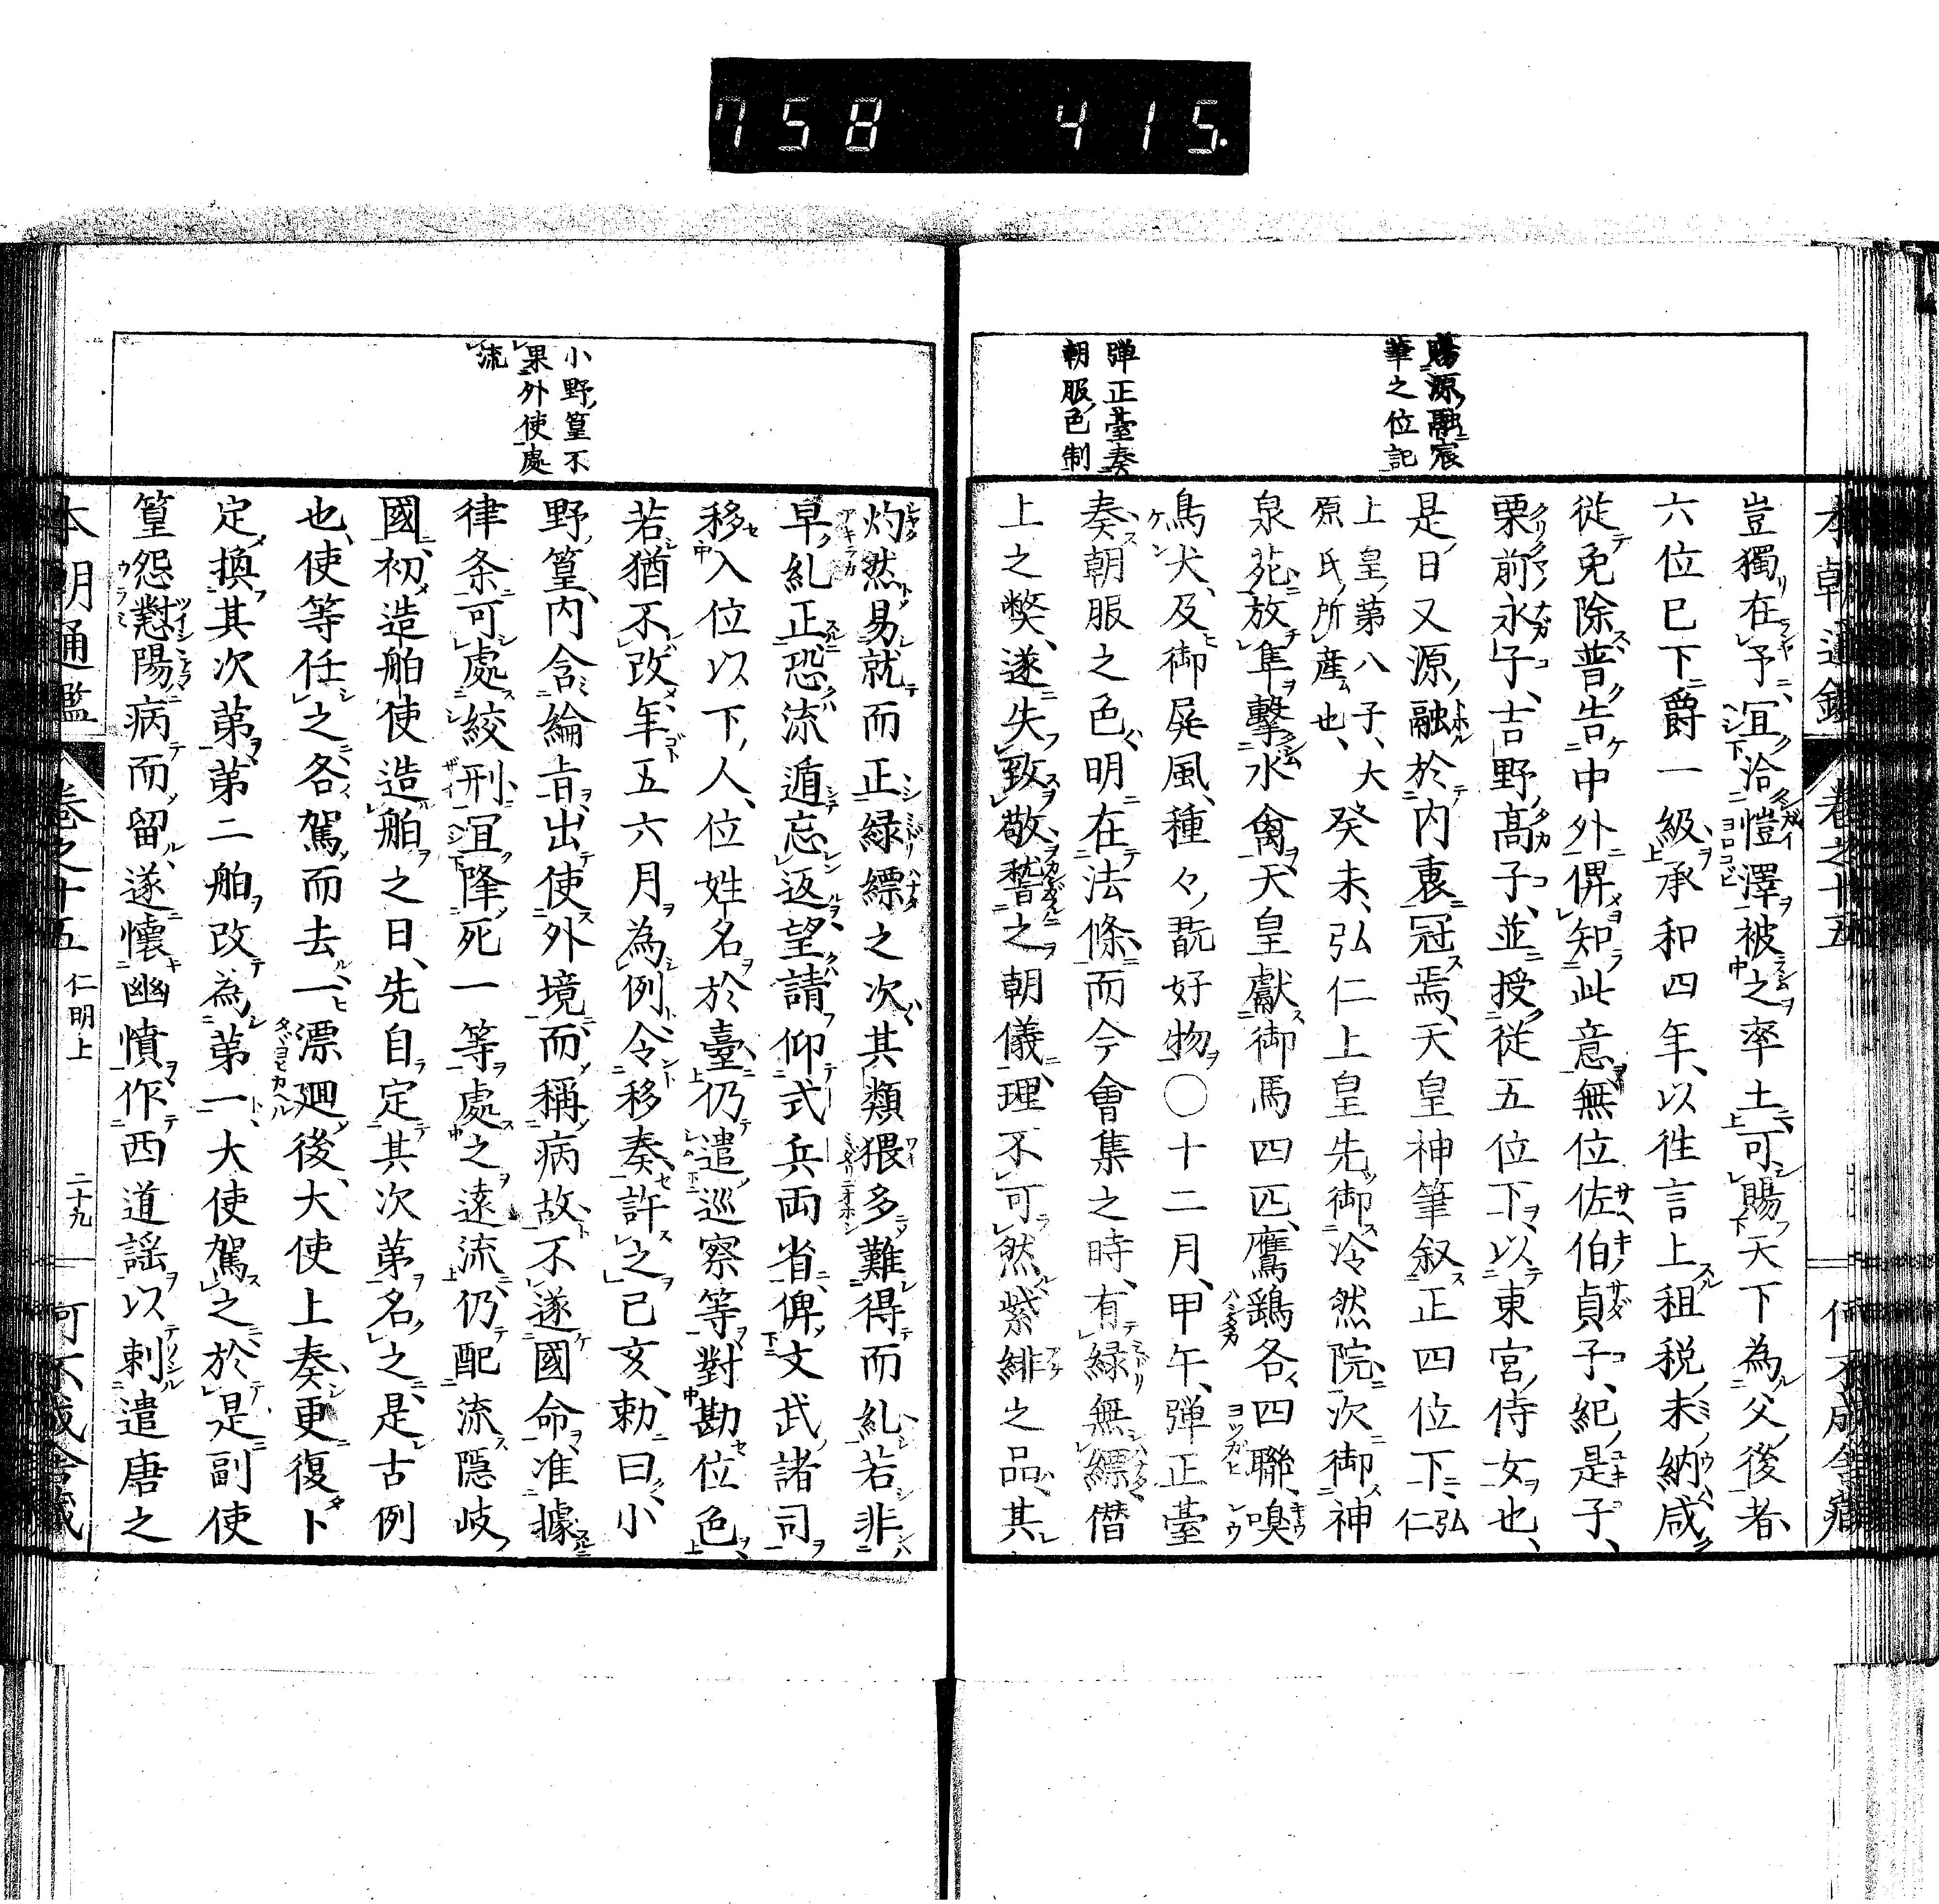 758 415.
賜源融宸
筆之位記
彈正臺奏
朝服色制
豈獨在予、宜洽愷澤被之率土、可賜天下為父後者、
六位已下爵一級、承和四年、以徃言上租税、未納咸
從免除普告中外俾知此意、無位佐伯貞子、紀是子、
栗前永子、吉野髙子、並授從五位下、以東宮侍女也、
是日又源融於内裏冠焉、天皇神筆叙正四位下、弘仁
上皇第八子、大原氏所產也、癸未、弘仁上皇先御冷然院、次御神
泉苑放隼擊水禽、天皇獻御馬四匹、鷹鷂各四聯、嗅
鳥犬、及御屏風、種々翫好物〇十二月、甲午、彈正臺
奏朝服之色明在法條、而今會集之時、有緑無縹僭
上之弊、遂失致敬、稽之朝儀、理不可然、紫緋之品、其
本朝通鑑 卷之十五 仁明上 二十九
小野篁不
果外使處
流
灼然易就而正緑縹之次、其類猥多難得而糺若非
早糺正、恐流遁忘返、望請仰式兵両省、俾文武諸司
移入位以下人、位姓名於臺、仍遣巡察等對勘位色、
若猶不改、年五六月為例、令移奏、許之、己亥、勅曰、小
野篁、内含綸旨、出使外境、而稱病故、不遂國命准據
律条可處絞刑、宜降死一等處之遠流、仍配流隠岐
國、初造舶使造舶之日、先自定其次第名之、是古例
也、使等任之各駕而去、一漂廻後、大使上奏、更復卜
定、換其次第、第二舶改為第一、大使駕之、於是副使
篁怨懟陽病而留、遂懷幽憤、作西道謡以刺遣唐之